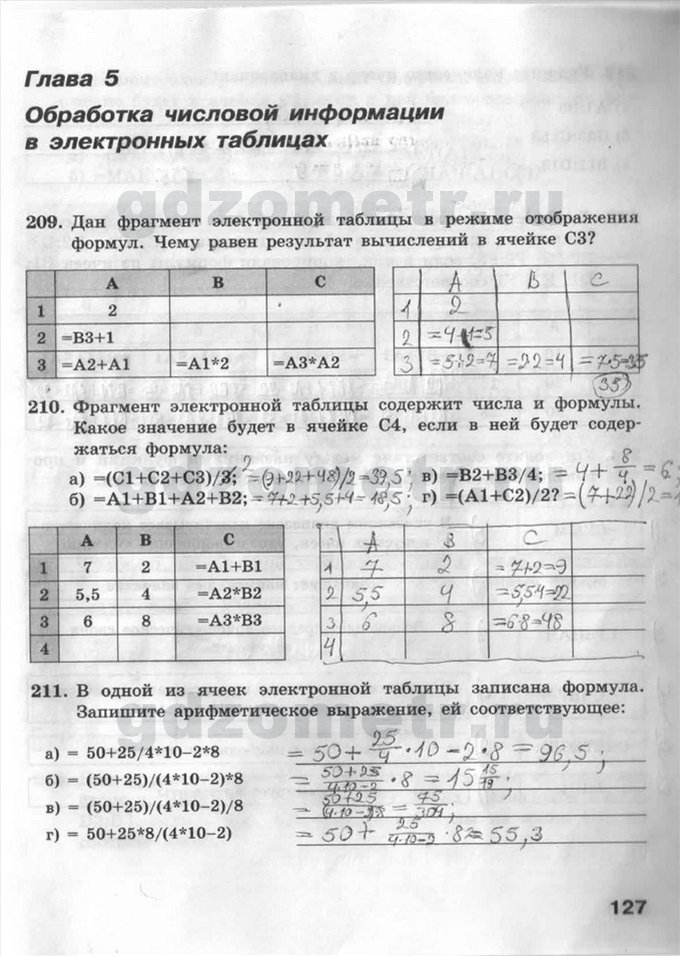 Глава 5
Обработка числовой информации
в электронных таблицах
gdzometr.ru
209. Дан фрагмент электронной таблицы в режиме отображения
формул. Чему равен результат вычислений в ячейке C3?
A B C
1 2
2 =B3+1
3 =A2+A1 =A1*2 =A3*A2
A B C
1 2
2 =4+1=5
3 =5+2=7 =2·2=4 =7·5=35
35
210. Фрагмент электронной таблицы содержит числа и формулы.
Какое значение будет в ячейке C4, если в ней будет содер-
жаться формула:
а) =(C1+C2+C3)/3; 2 =(9+22+48)/2=39,5; в) =B2+B3/4; =4+8/4=6;
б) =A1+B1+A2+B2; =7+2+5,5+4=18,5; г) =(A1+C2)/2? =(7+22)/2=1
gdzometr.ru
A B C
1 7 2 =A1+B1
2 5,5 4 =A2*B2
3 6 8 =A3*B3
4
A B C
1 7 2 =7+2=9
2 5,5 4 =5,5·4=22
3 6 8 =6·8=48
4
211. В одной из ячеек электронной таблицы записана формула.
Запишите арифметическое выражение, ей соответствующее:
gdzometr.ru
а) = 50+25/4*10–2*8 = 50+25/4·10–2·8=96,5;
б) = (50+25)/(4*10–2)*8 = 50+25/4·10-2·8=15 15/19;
в) = (50+25)/(4*10–2)/8 = 50+25/(4·10-2)·8=75/304;
г) = 50+25*8/(4*10–2) = 50+25/4·10-2·8≈55,3
127